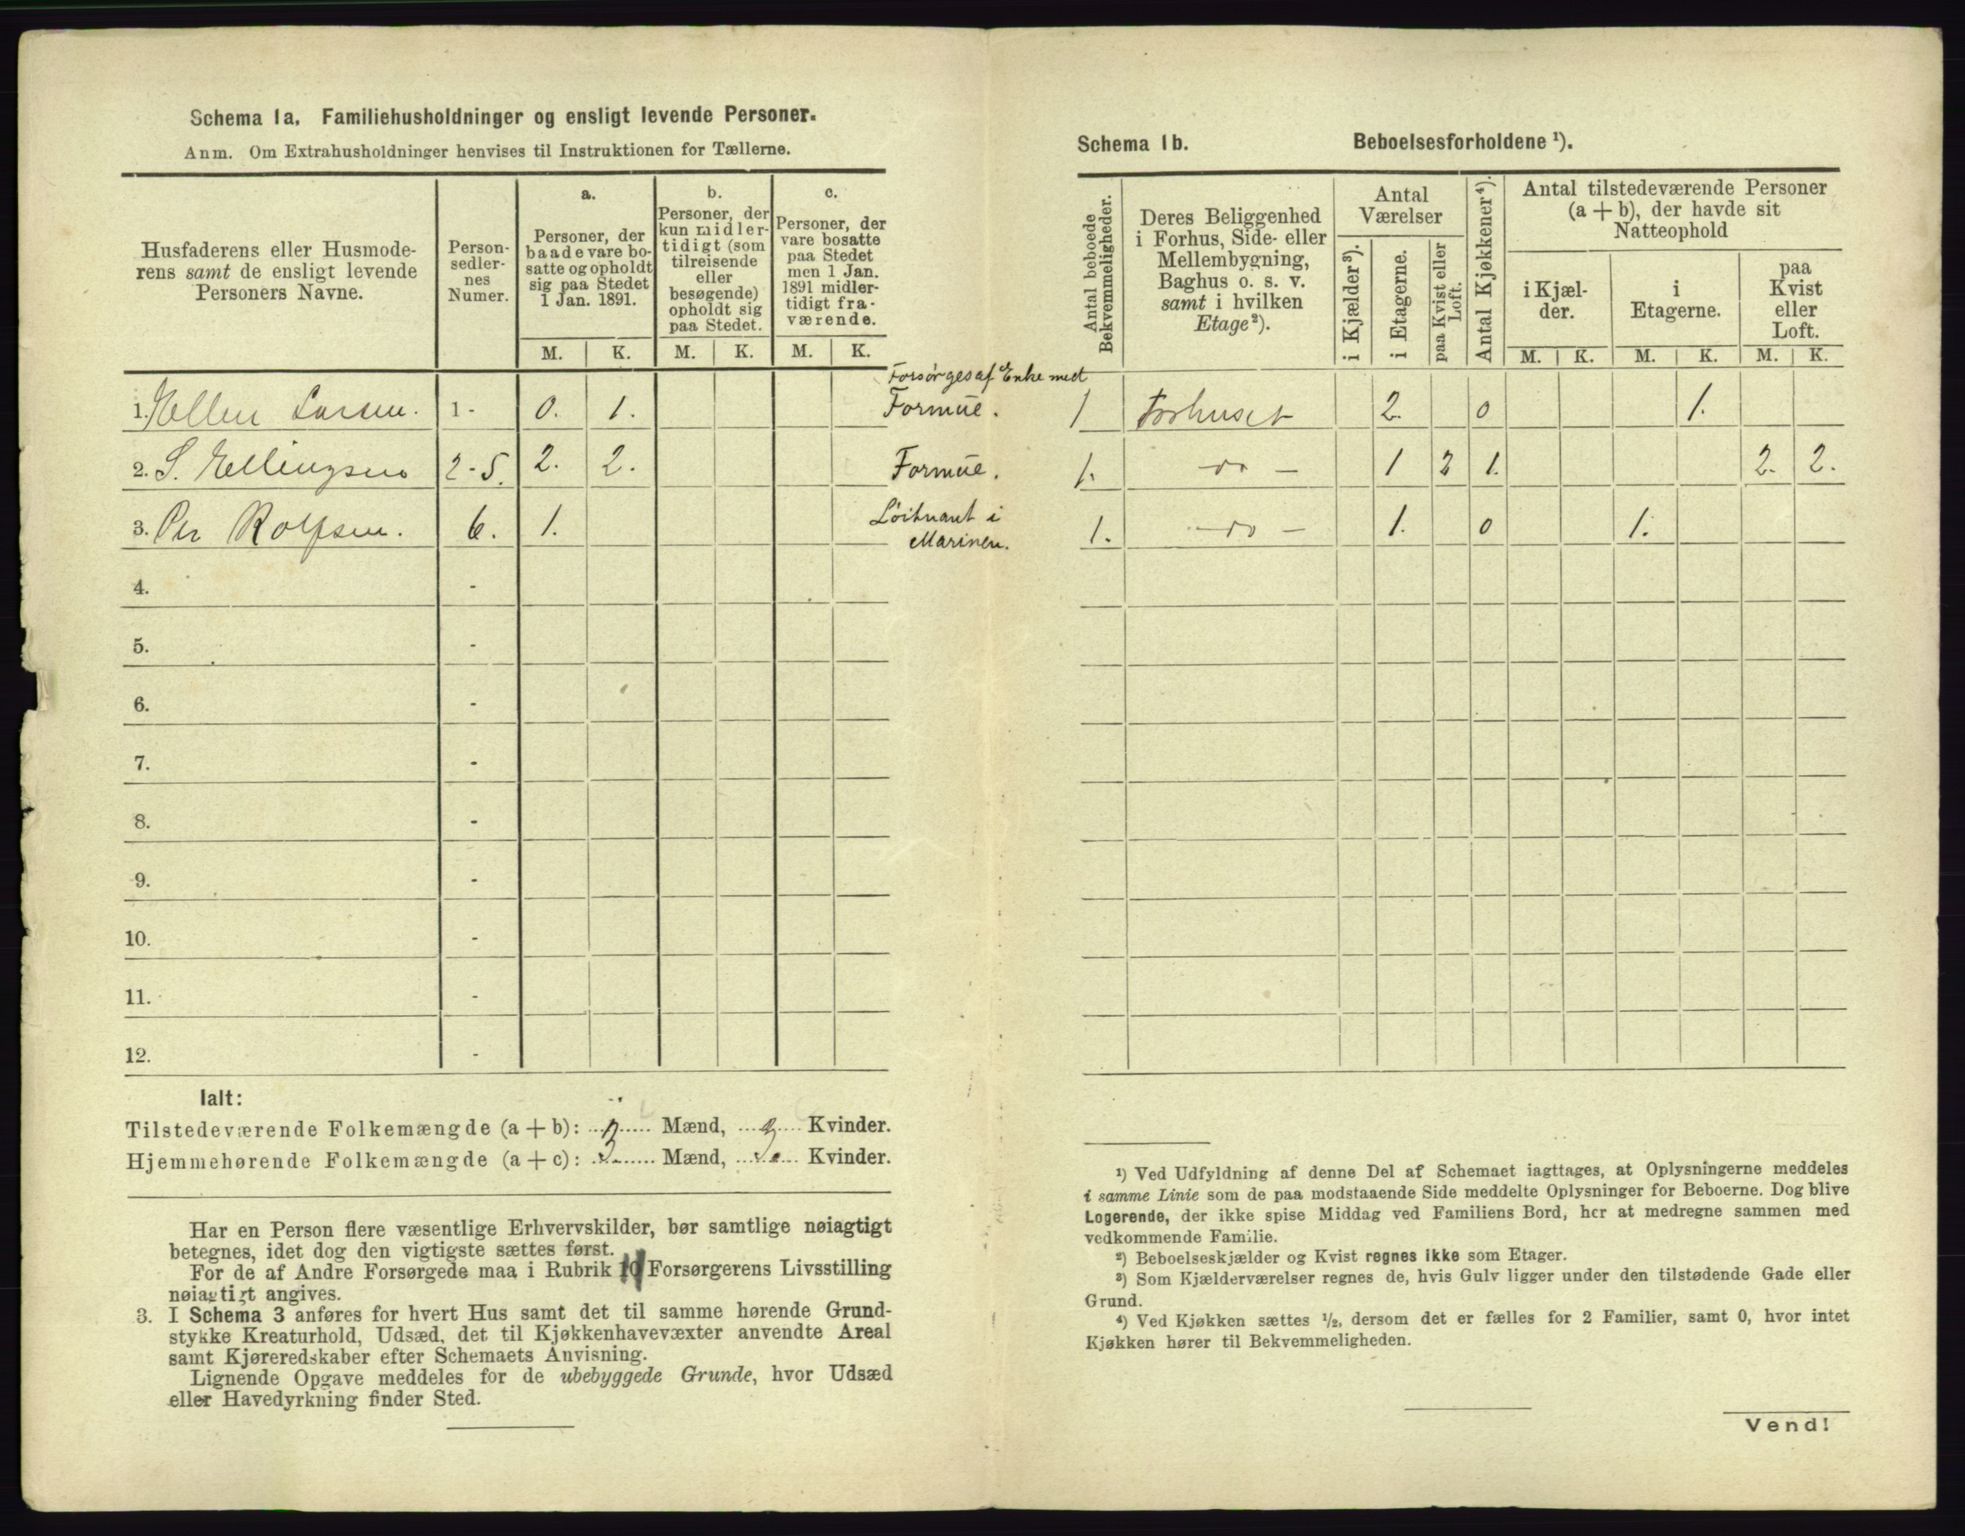 Schema 1a. Familiehusholdninger og ensligt levende Personer.
Anm. Om Extrahusholdninger henvises til Instruktionen for Tællerne.
Husfaderens eller Husmode-
rens samt de ensligt levende
Personers Navne.
Person-
sedler-
nes
Numer.
a.
Personer, der
baade vare bo-
satte og opholdt
sig paa Stedet
1 Jan. 1891.
b.
Personer, der
kun midler-
tidigt (som
tilreisende
eller
besøgende)
opholdt sig
paa Stedet.
c.
Personer, der
vare bosatte
paa Stedet
men 1 Jan.
1891 midler-
tidigt fra-
værende.
M. K. M. K. M. K.
Forsørges af Enke med
1. Ellen Larsen. 1 - 0. 1. Formue.
2. S. Ellingsen 2 - 5. 2. 2. Formue.
3. Per Rolfsen. 6. 1. Løitnant i
Marinen.
4. -
5. -
6. -
7. -
8. -
9. -
10. -
11. -
12. -
Ialt:
Tilstedeværende Folkemængde (a + b): Mænd, 3 Kvinder.
Hjemmehørende Folkemængde (a + c): 3 Mænd, 3. Kvinder.
Har en Person flere væsentlige Erhvervskilder, bør samtlige nøiagtigt
betegnes, idet dog den vigtigste sættes først.
For de af Andre Forsørgede maa i Rubrik 11 Forsørgerens Livsstilling
nøiagtigt angives.
3. I Schema 3 anføres for hvert Hus samt det til samme hørende Grund-
stykke Kreaturhold, Udsæd, det til Kjøkkenhavevæxter anvendte Areal
samt Kjøreredskaber efter Schemaets Anvisning.
Lignende Opgave meddeles for de ubebyggede Grunde, hvor Udsæd
eller Havedyrkning finder Sted.
Schema 1b. Beboelsesforholdene ¹).
Antal beboede
Bekvemmeligheder.
Deres Beliggenhed
i Forhus, Side- eller
Mellembygning,
Baghus o. s. v.
samt i hvilken
Etage²).
Antal
Værelser
i Kjælder³).
i Etagerne.
paa Kvist eller
Loft.
Antal Kjøkkener⁴).
Antal tilstedeværende Personer
(a + b), der havde sit
Natteophold
i Kjæl-
der.
i
Etagerne.
paa
Kvist
eller
Loft.
M. K. M. K. M. K.
1 Forhuset 2. 0 1.
1. - do - 1 2 1. 2. 2.
1. - do - 1. 0 1.
¹) Ved Udfyldning af denne Del af Schemaet iagttages, at Oplysningerne meddeles
i samme Linie som de paa modstaaende Side meddelte Oplysninger for Beboerne. Dog blive
Logerende, der ikke spise Middag ved Familiens Bord, her at medregne sammen med
vedkommende Familie.
²) Beboelseskjælder og Kvist regnes ikke som Etager.
³) Som Kjælderværelser regnes de, hvis Gulv ligger under den tilstødende Gade eller
Grund.
⁴) Ved Kjøkken sættes ½, dersom det er fælles for 2 Familier, samt 0, hvor intet
Kjøkken hører til Bekvemmeligheden.
Vend!